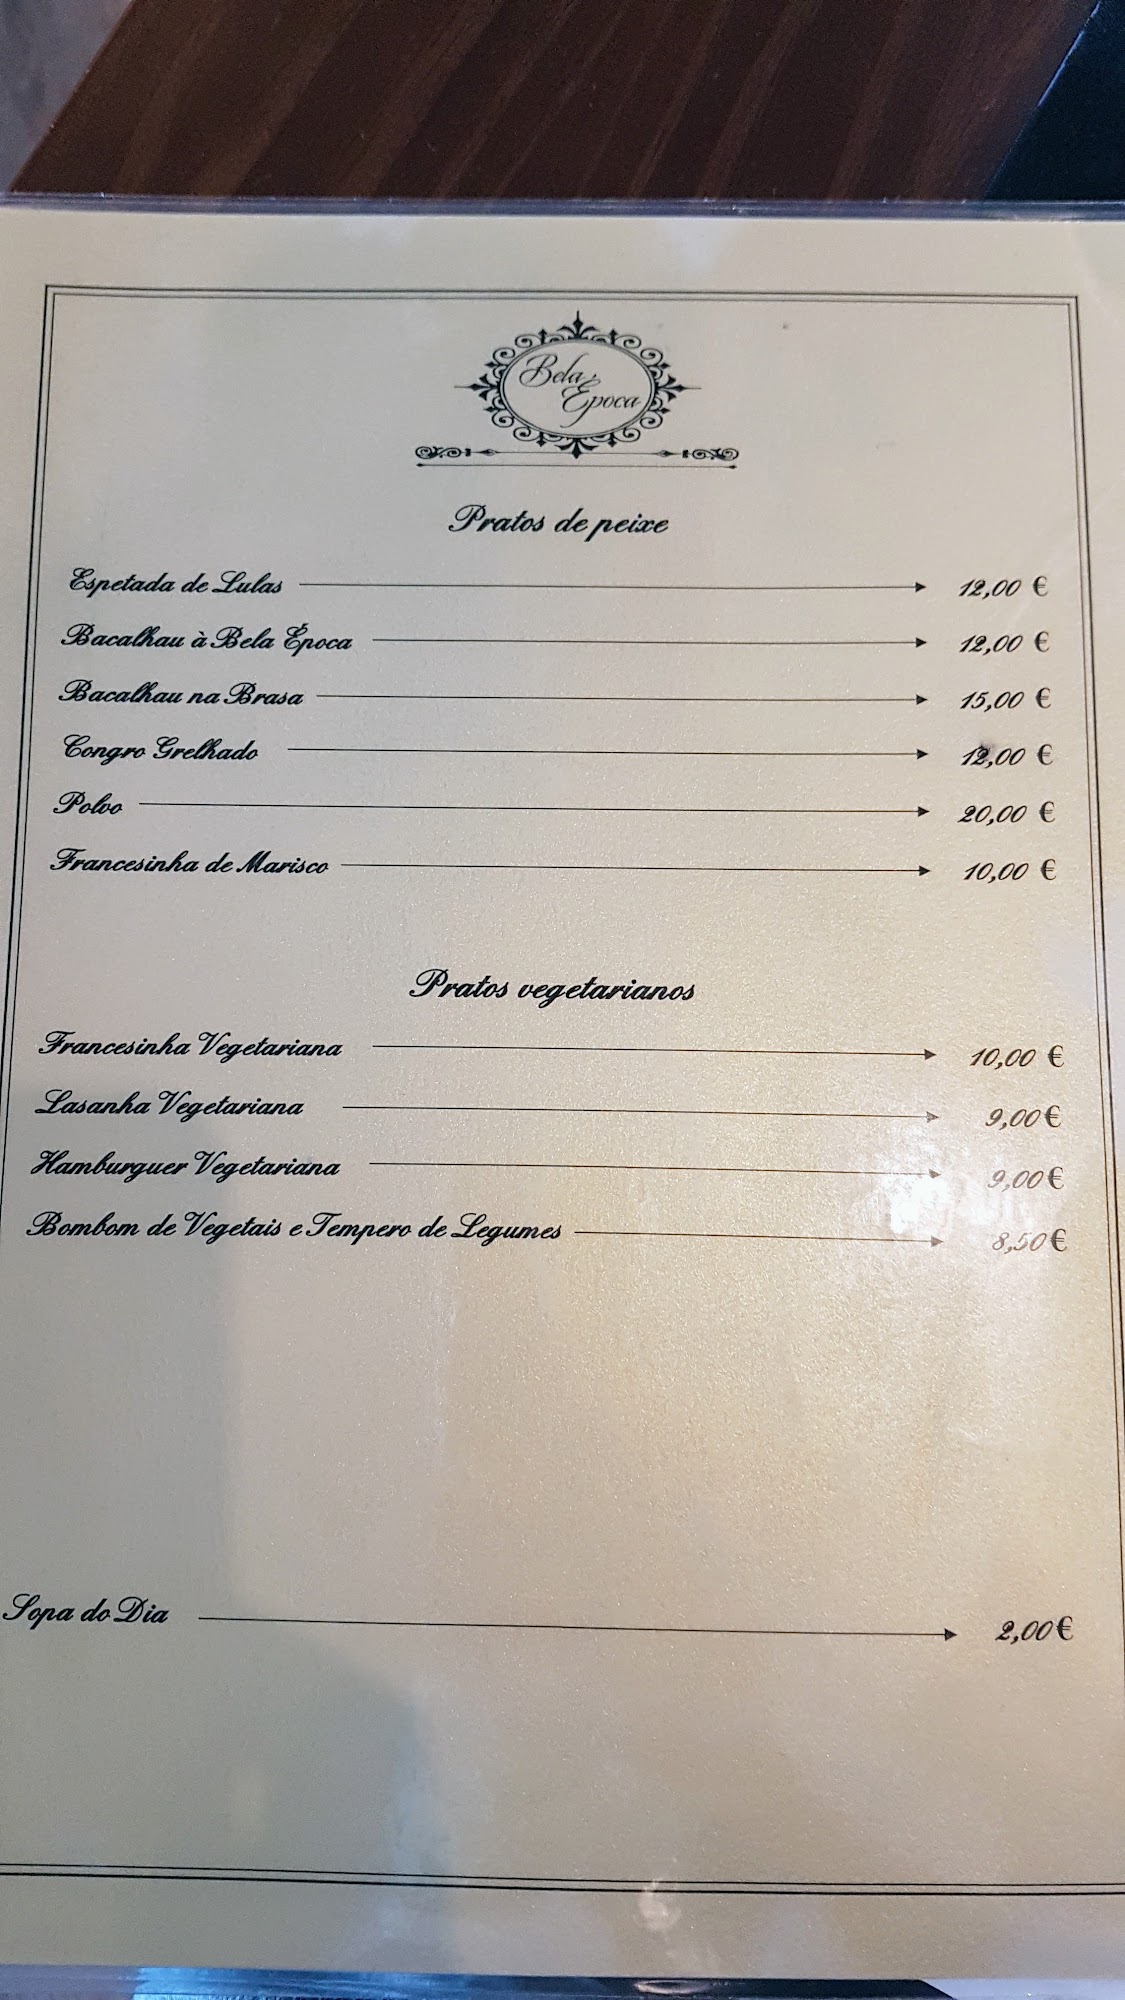 Bela
Época
Pratos de peixe
Espetada de Lulas 12,00 €
Bacalhau à Bela Época 12,00 €
Bacalhau na Brasa 15,00 €
Congro Grelhado 12,00 €
Polvo 20,00 €
Francesinha de Marisco 10,00 €
Pratos vegetarianos
Francesinha Vegetariana 10,00 €
Lasanha Vegetariana 9,00€
Hamburguer Vegetariana 9,00€
Bombom de Vegetais e Tempero de Legumes 8,50€
Sopa do Dia 2,00€